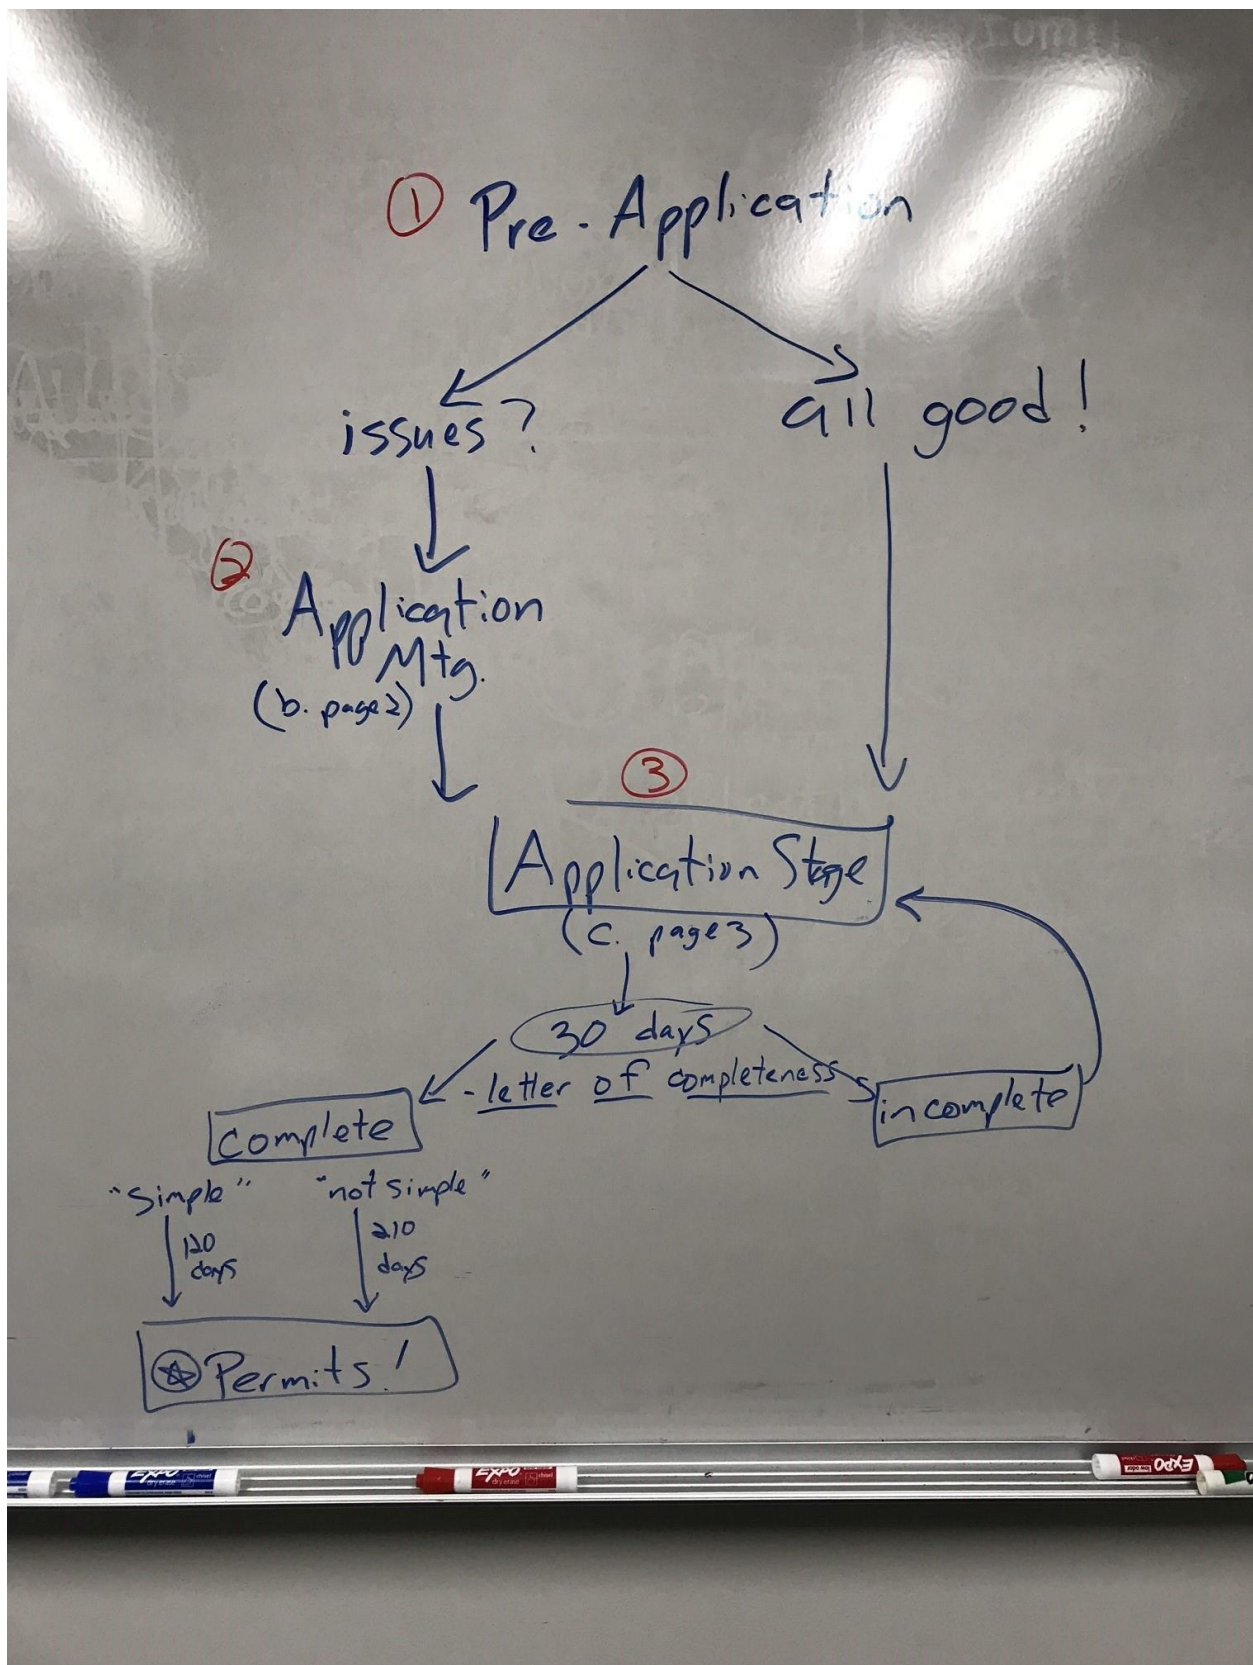 ① Pre-Application
issues?
all good!
② Application
Mtg.
(b. page 2)
③
Application Stage
(c. page 3)
30 days
- letter of completeness
complete
incomplete
"simple"
"not simple"
120
days
210
days
Permits!
EXPO
dry erase
EXPO
dry erase
EXPO
low odor